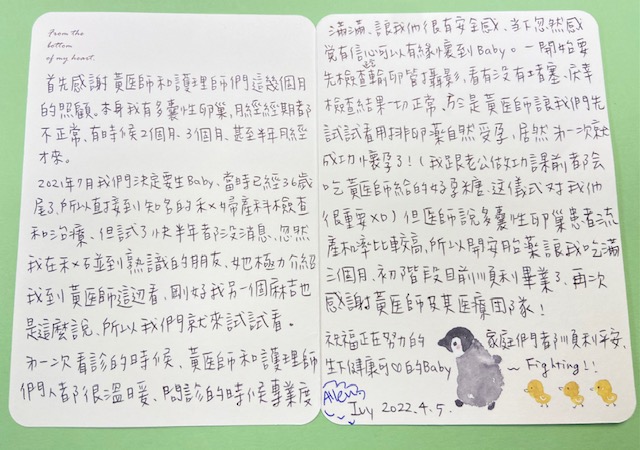 From the
bottom
of my heart.
首先感謝 黃醫師和護理師們這幾個月
的照顧。本身我有多囊性卵巢,月經經期都
不正常、有時候2個月、3個月、甚至半年月經
才來。
2021年7月我們決定要生Baby、當時已經36歲
尾了,所以直接到知名的禾×婦產科檢查
和治療、但試了快半年都沒消息、忽然
我在禾×碰到熟識的朋友、她極力介紹
我到黃醫師這邊看,剛好我另一個麻吉也
是這麼說、所以我們就來試試看。
第一次看診的時候、黃醫師和護理師
們人都很溫暖、問診的時候專業度
滿滿、讓我們很有安全感、當下忽然感
覺有信心可以有緣懷到Baby。一開始要
先檢查輸卵管攝影,看有沒有堵塞、庆幸
檢查結果一切正常、於是黃醫師讓我們先
試試看用排卵藥自然受孕,居然第一次就
成功懷孕了!(我跟老公做功課前都会
吃黃醫師給的好孕糖、这儀式对我們
很重要XD)但医師說多囊性卵巢患者流
產和率比較高,所以開安胎藥讓我吃滿
三個月、初階段目前順利畢業了、再次
感謝黃医師及其医療团隊!
祝福正在努力的 家庭們都順利平安,
生下健康可♡的Baby ~ Fighting!!
Ivy 2022.4.5.